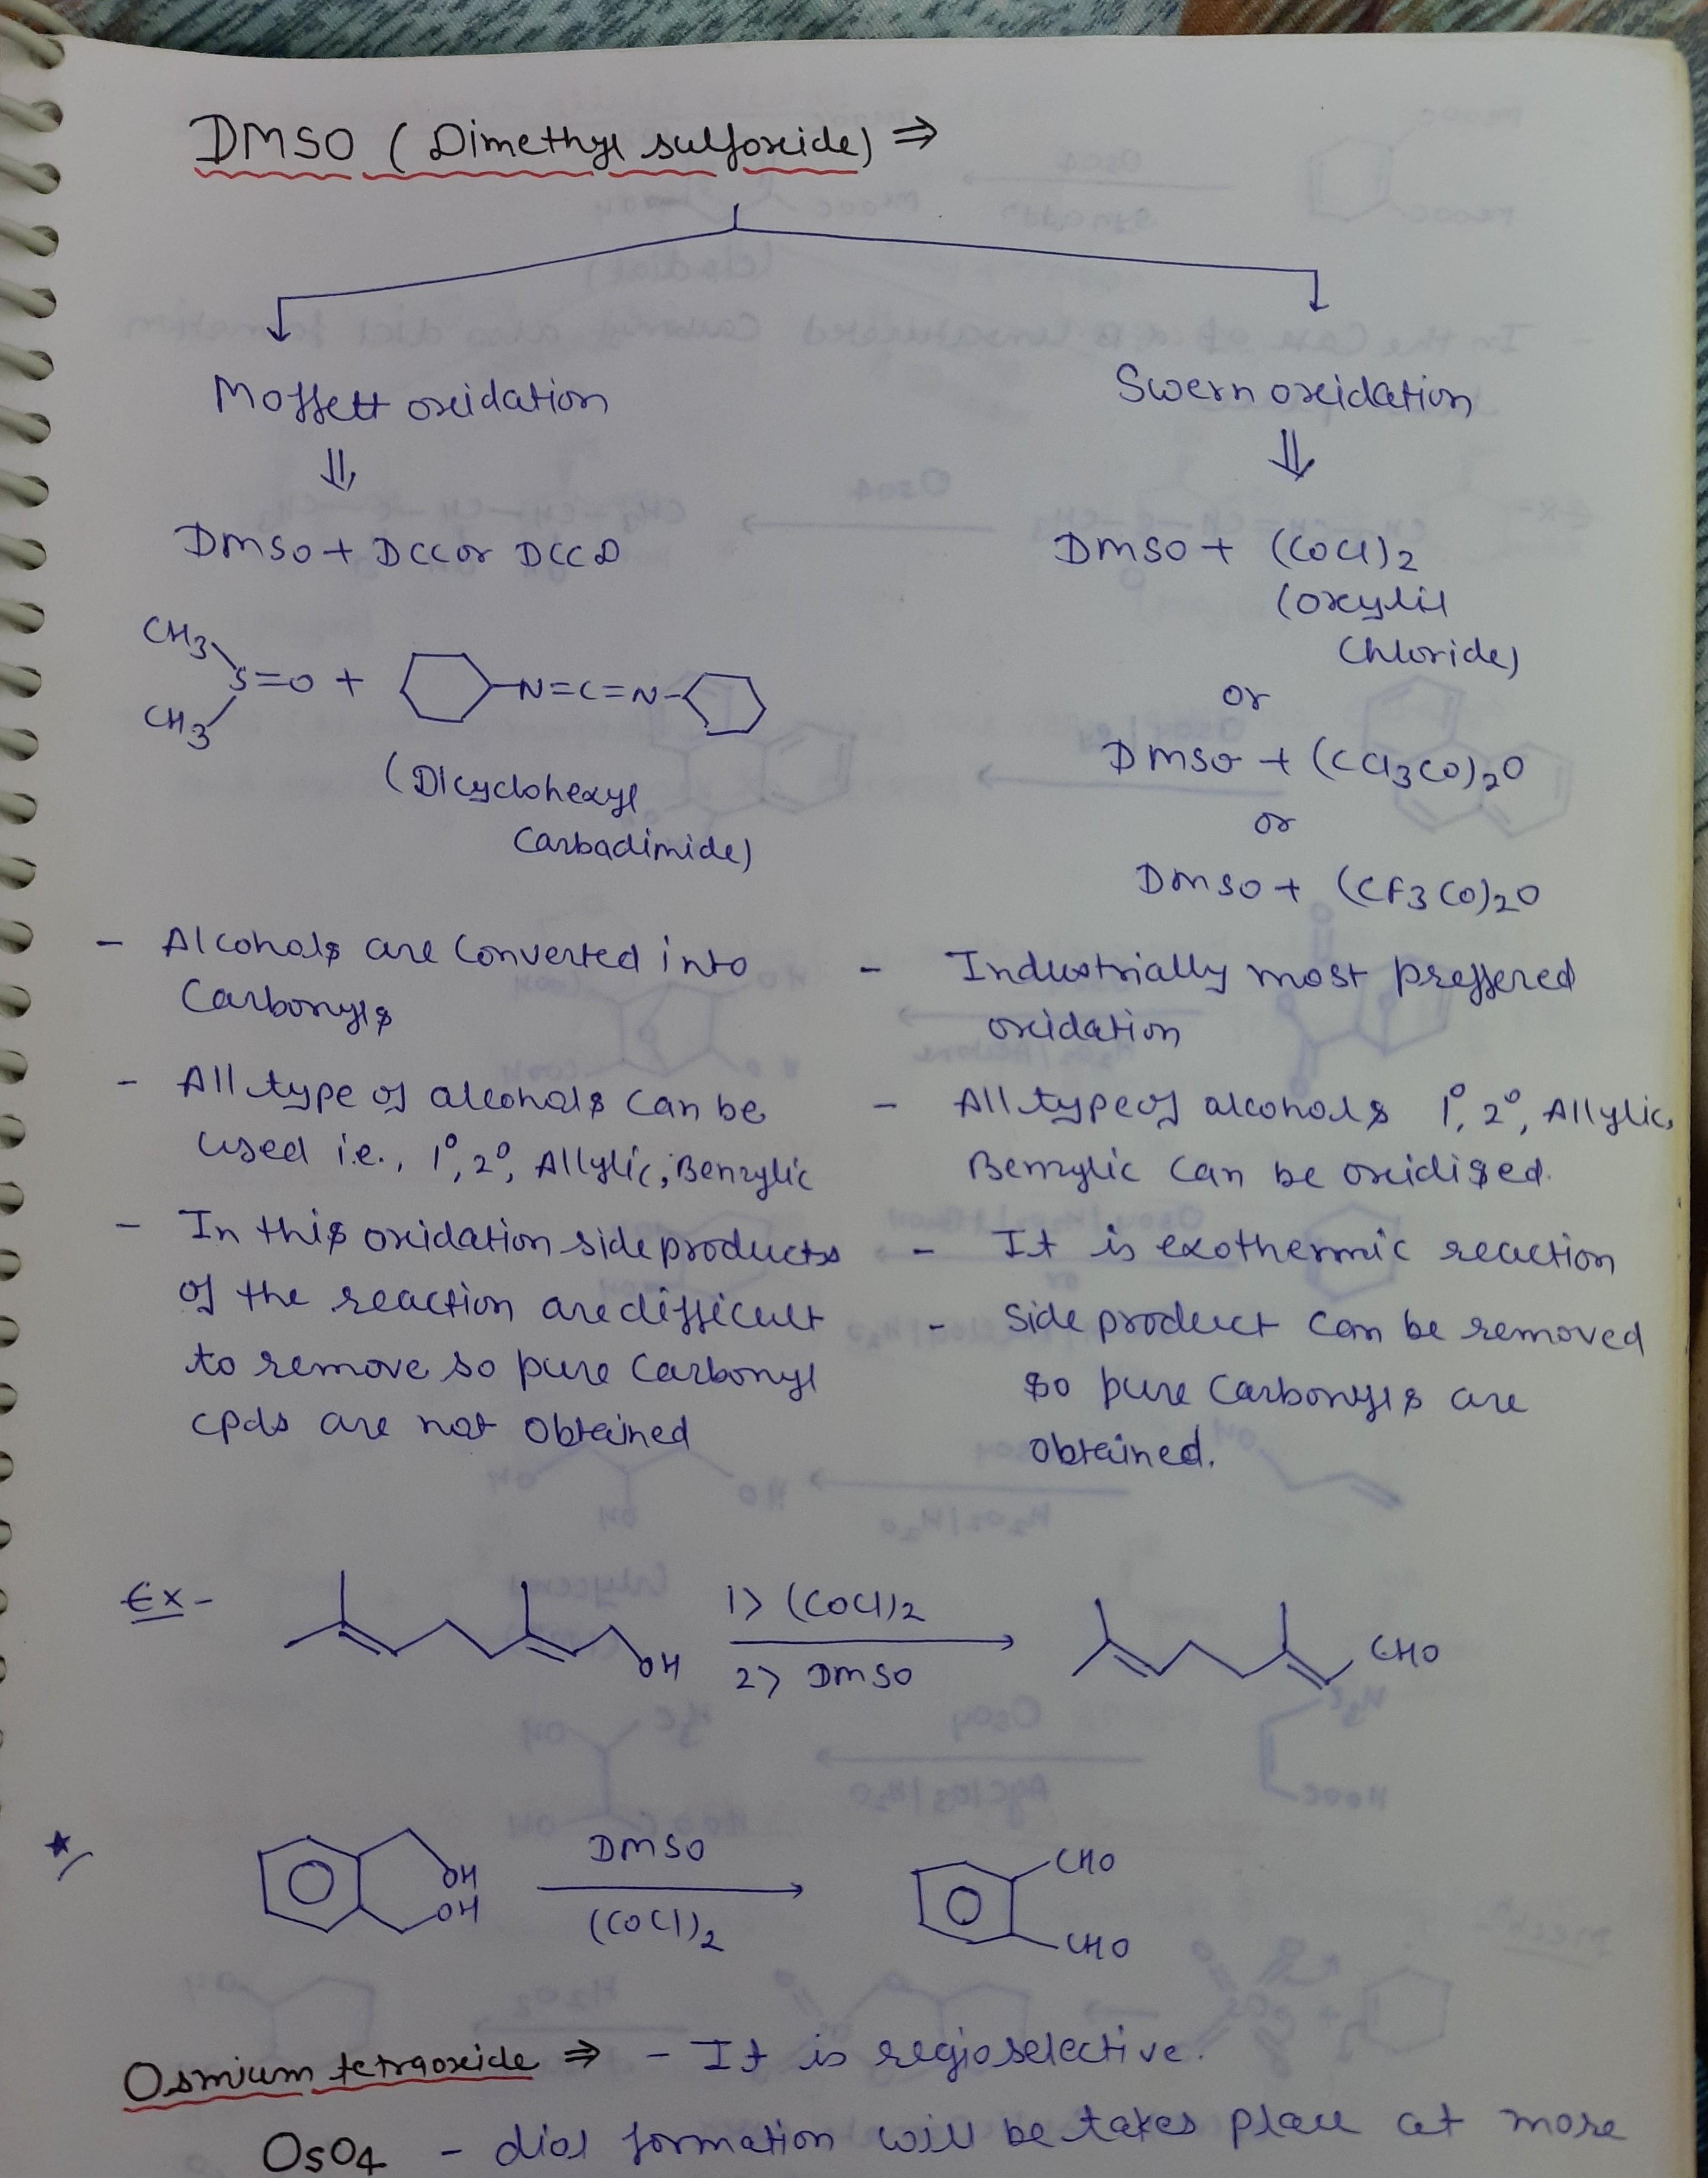 DMSO (Dimethyl sulfoxide) ⇒
Moffett oxidation
⇓
DMSO + DCC or DCCD
CH3
S=O + -N=C=N-
CH3
(Dicyclohexyl
Carbadimide)
- Alcohols are converted into
Carbonyls
- All type of alcohols can be
used i.e., 1°, 2°, Allylic, Benzylic
- In this oxidation side products
of the reaction are difficult
to remove so pure Carbonyl
cpds are not obtained
Swern oxidation
⇓
DMSO + (COCl)2
(oxylil
Chloride)
or
DMSO + (CCl3CO)2O
or
DMSO + (CF3CO)2O
- Industrially most preffered
oxidation
- All type of alcohols 1°, 2°, Allylic,
Benzylic can be oxidised.
- It is exothermic reaction
- Side product can be removed
so pure Carbonyls are
obtained.
Ex- OH 1> (COCl)2 CHO
2> DMSO
OH DMSO CHO
OH (COCl)2 CHO
Osmium tetraoxide ⇒ - It is regioselective.
OsO4 - diol formation will be takes place at more